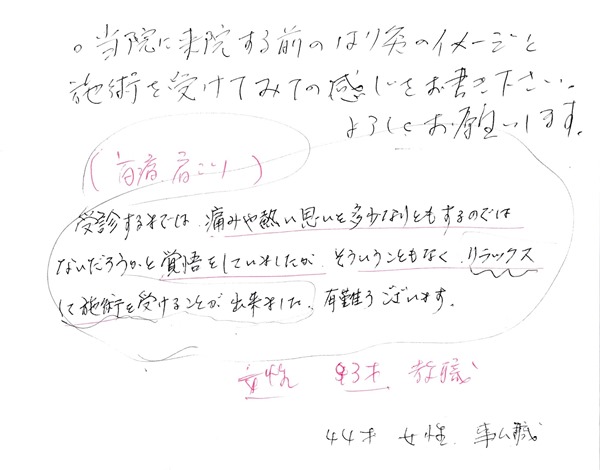 ○当院に来院する前のはり灸のイメージと
施術を受けてみての感じをお書き下さい。
よろしくお願いします。
(首痛 肩こり)
受診するまでは、痛みや熱い思いを多少なりともするのでは
ないだろうかと覚悟をしていましたが、そういうこともなく、リラックス
して施術を受けることが出来ました。有難うございます。
女性 43才 教職
44才 女性 事ム職